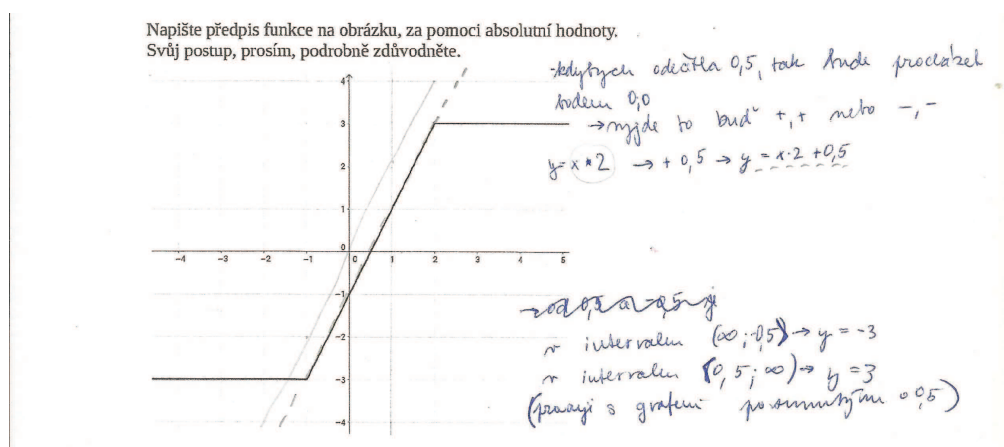 Napište předpis funkce na obrázku, za pomoci absolutní hodnoty.
Svůj postup, prosím, podrobně zdůvodněte.
-kdybych odečtla 0,5, tak bude procházet
bodem 0;0
→ vyjde to buď +,+ nebo -,-
y = x * 2 → + 0,5 → y = x·2 + 0,5
4
3
2
1
0
-4 -3 -2 -1 0 1 2 3 4 5
-1
-2
-3
-4
v intervalu (∞; 0,5) → y = -3
v intervalu (0,5; ∞) → y = 3
(pracuji s grafem posunutým o 0,5)